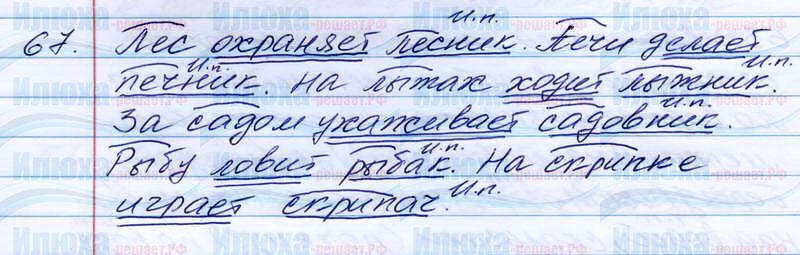 И.п.
67. Лес охраняет лесник. Печи делает
И.п. И.п.
печник. На лыжах ходит лыжник.
И.п.
За садом ухаживает садовник.
И.п.
Рыбу ловит рыбак. На скрипке
И.п.
играет скрипач.
Илюха-решает.РФ